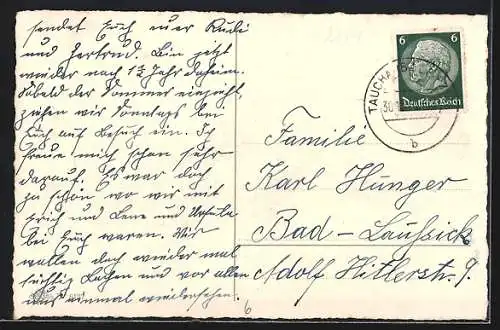 sendet Euch euer Rudi
und Gertrud. Bin jetzt
wieder nach 1½ Jahr daheim.
Sobald der Sommer einzieht,
ziehen wir Sonntags bei
Euch auf Besuch ein. Ich
freue mich schon sehr
darauf. Es war doch
zu schön wo wir mit
Erich und Lene und Ursula
bei Euch waren. Wir
wollen doch wieder mal
tüchtig Lachen und vor allen
uns einmal wiedersehen.
6 6
Deutsches Reich
TAUCHA
30.
b
Familie
Karl Hunger
Bad-Lausick
Adolf Hitlerstr. 9.
6